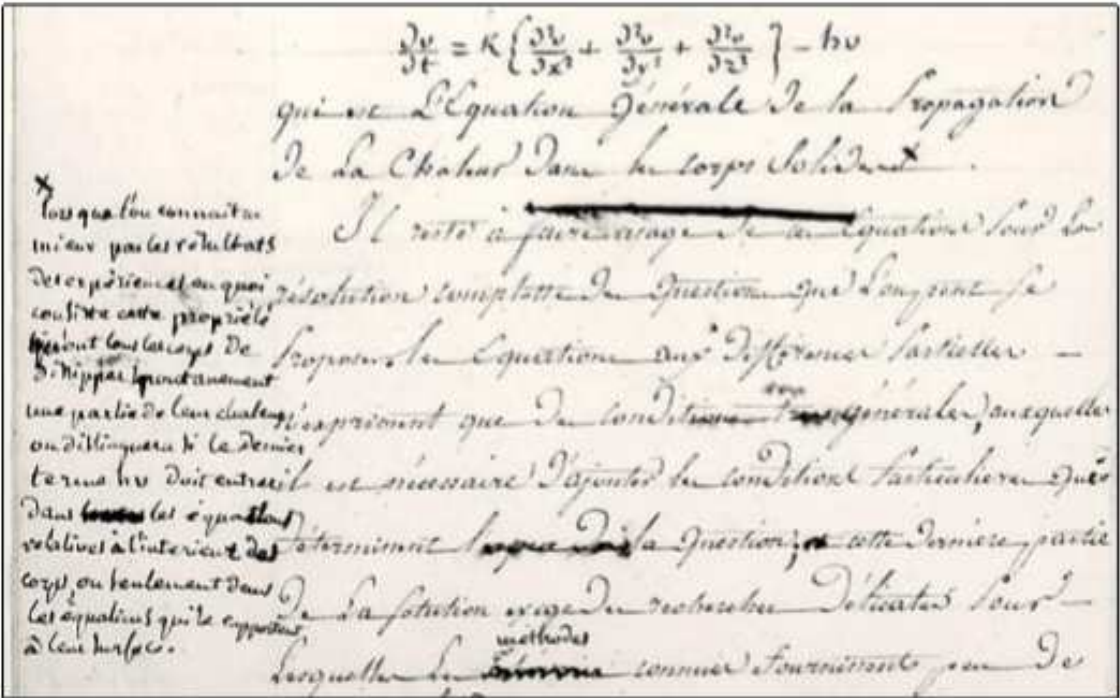 ∂v/∂t = K { ∂²v/∂x² + ∂²v/∂y² + ∂²v/∂z² } − hv
qui est L'Equation Générale de la Propagation
de La Chaleur dans les corps Solides ×
Il reste à faire usage de ces Equations Pour La
résolution complette des Questions que L'on peut se
Proposer, les Equations aux Différences Partielles
n'expriment que des conditions générales, auxquelles
il est nécessaire d'ajouter les conditions Particulieres qui
déterminent la Question; cette dernière partie
de La solution exige des recherches Délicates Pour
Lesquelles Les méthodes connues fournissent peu de
×
lorsque l'on connaîtra
mieux par les résultats
des expériences en quoi
consiste cette propriété
qu'ont tous les corps De
dissipper spontanément
une partie de leur chaleur
on distinguera si le dernier
terme hv doit entrer
dans les équations
relatives à l'interieur des
corps, ou seulement dans
les équations qui se rapportent
à leur surface.